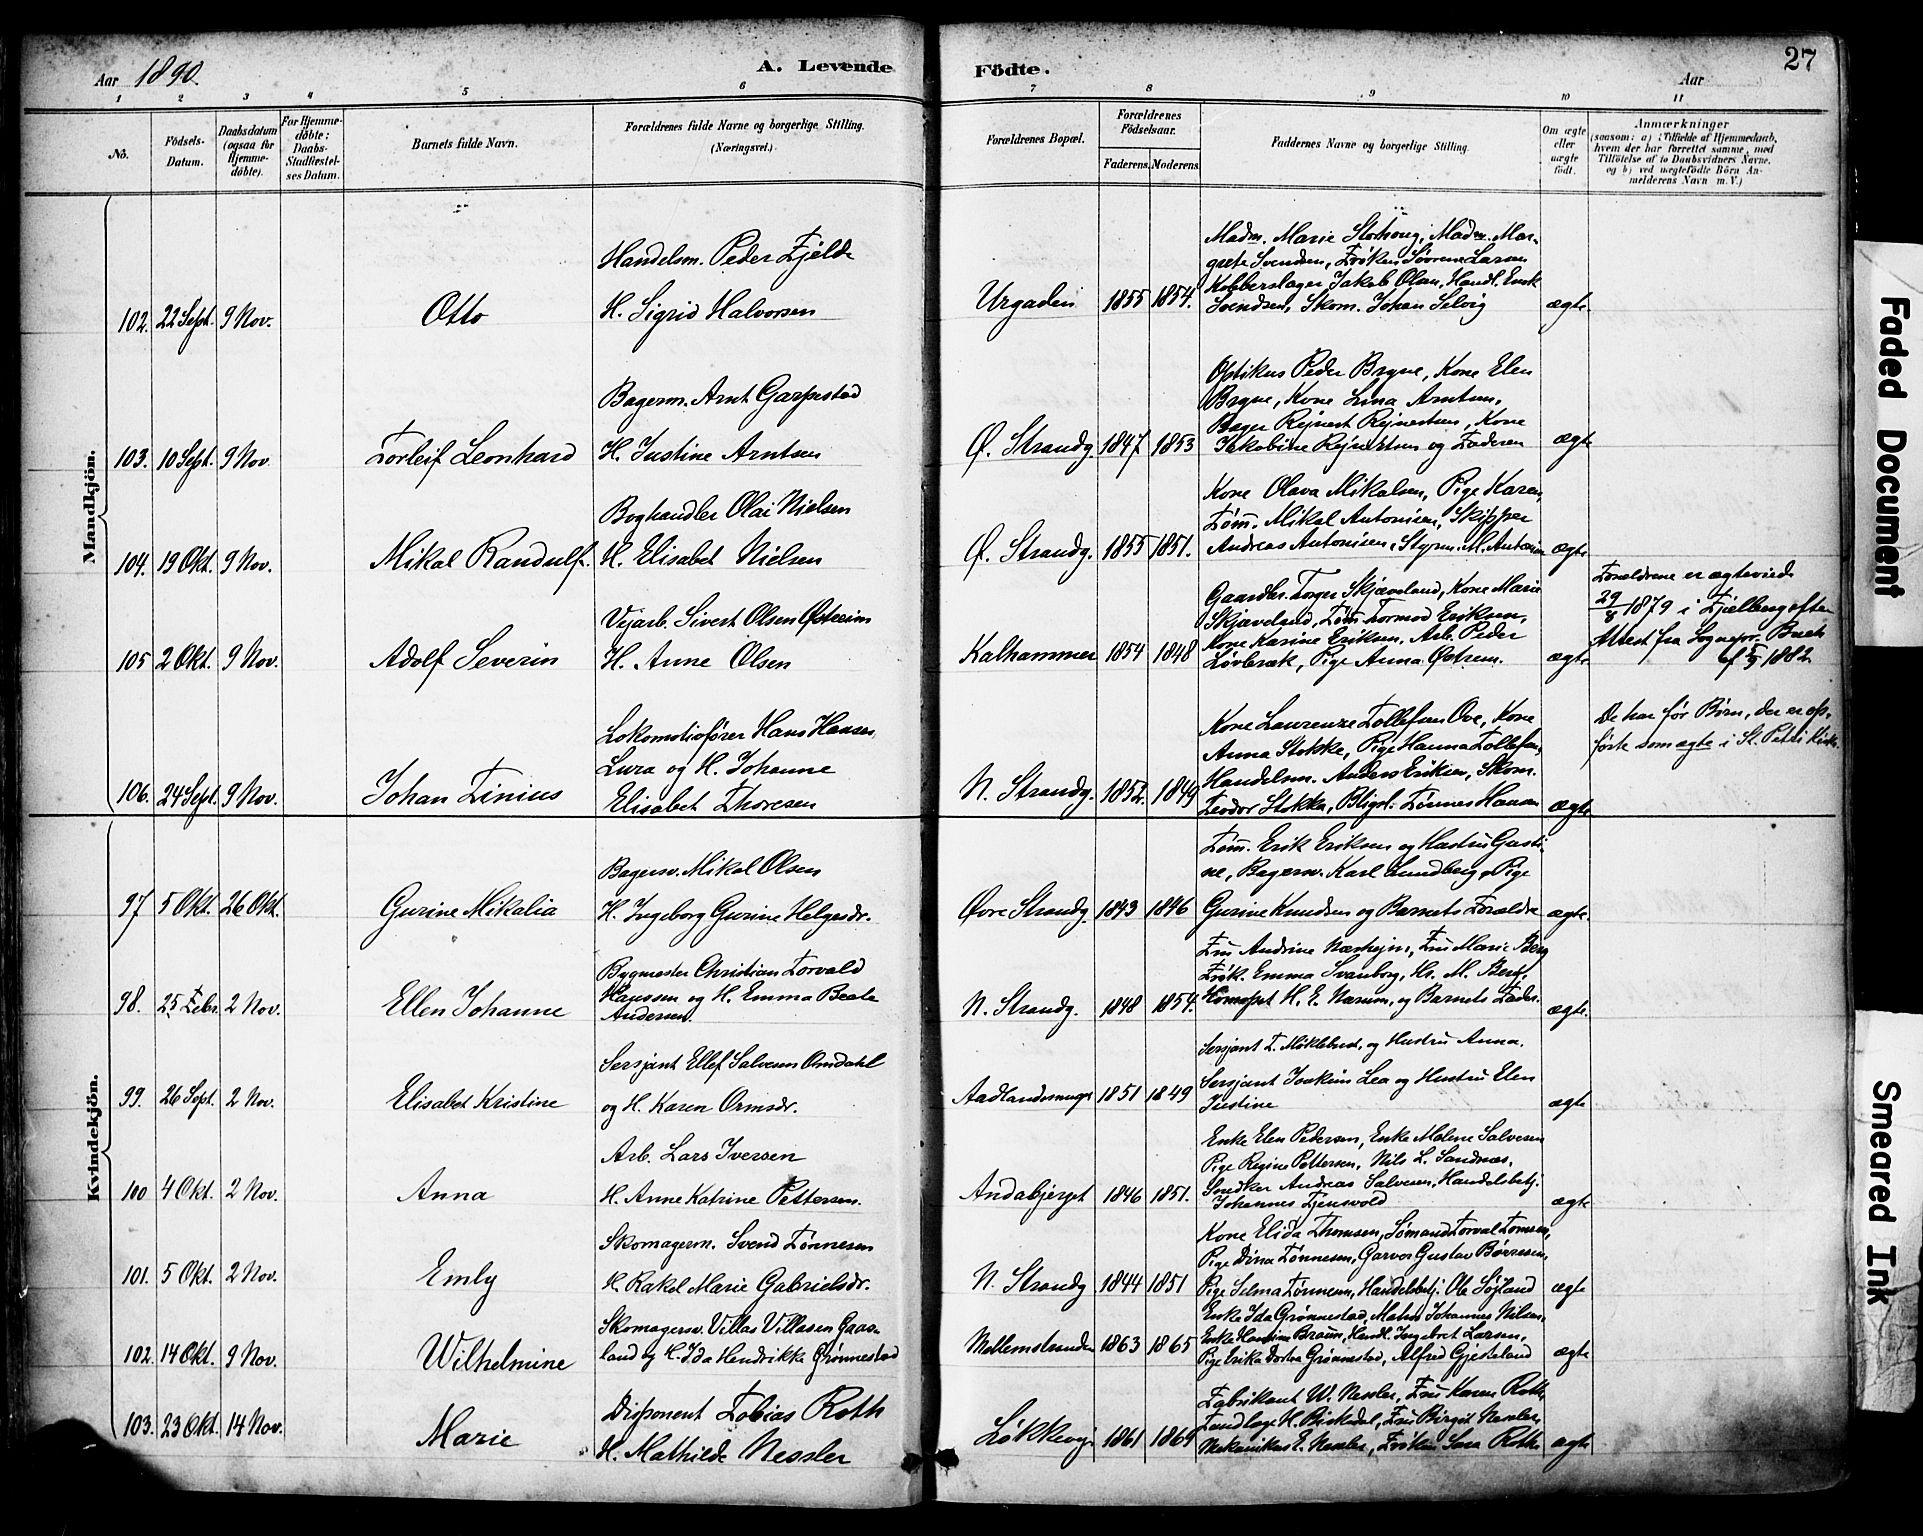 Aar 1890.
A. Levende
Födte.
Aar
27
1 2 3 4 5 6 7 8 9 10 11
No.
Födsels-Datum.
Daabsdatum (ogsaa for Hjemme-døbte).
For Hjemme-døbte: Daabs-Stadfæstel-ses Datum.
Barnets fulde Navn.
Forældrenes fulde Navne og borgerlige Stilling. (Næringsvei.)
Forældrenes Bopæl.
Forældrenes Födselsaar.
Faderens. Moderens.
Faddernes Navne og borgerlige Stilling.
Om ægte eller uægte født.
Anmærkninger
(saasom: a) i Tilfælde af Hjemmedaab,
hvem der har forrettet samme, med
Tilföielse af to Daabsvidners Navne,
og b) ved uægtefödte Börn An-
melderens Navn m. V.)
Mandkjön.
Handelsm. Peder Fjelde
102. 22 Sept. 9 Nov. Otto H. Sigrid Halvorsen
Urgaden 1855 1854.
Madm. Marie Storhoug, Madm. Mar-
grete Svendsen, Frøken Larsen
Kobberslager Jakob Olsen, Handl. Enok
Svendsen, Skom. Johan Selvig ægte.
Bagerm. Arnt Garpestad
103. 10 Sept. 9 Nov Torleif Leonhard H. Justine Arntsen
Ø. Strandg. 1847 1853
Optikus Peder Bryne, Kone Elen
Bryne, Kone Lina Arntsen,
Bager Rejnert Rejnertsen, Kone
Jakobine Rejnertsen og Faderen ægte
Boghandler Olai Nielsen
104. 19 Okt. 9 Nov. Mikal Randulf. H. Elisabet Nielsen
Ø. Strandg. 1855 1851.
Kone Olava Mikalsen, Pige Karen
Tøm. Mikal Antonisen, Skipper
Andreas Antonisen, Styrm. M. Antonisen ægte
Vejarb. Sivert Olsen Østreim
105 2 Okt. 9 Nov. Adolf Severin H. Anne Olsen
Kalhammer 1854 1848
Gaardbr. Torger Skjæveland, Kone Marie
Skjæveland, Tøm. Tormod Eriksen,
Kone Karine Eriksen, Arb. Peder
Løvbræk, Pige Anna Østrem. ægte
Forældrene er ægteviede
29/8 1879 i Fjelberg efter
Attest fra Sognepr. Buch
af 5/5 1882
Lokomotivfører Hans Hansen
Lura og H. Johanne
106. 24 Sept. 9 Nov. Johan Tinius Elisabet Thoresen
N. Strandg. 1852. 1849
Kone Laurenze Tollefsen Ove, Kone
Anna Stokke, Pige Hanna Tollefsen,
Handelsm. Anders Eriksen, Skom.
Teodor Stokka, Bligsl. Tønnes Hansen ægte
De har før Børn, der er op-
førte som ægte i St. Petri Kirke.
Kvindekjön.
Bagersv. Mikal Olsen
97 5 Okt. 26 Okt. Gurine Mikalia H. Ingeborg Gurine Helgesdr.
Øvre Strandg. 1843 1846
Tøm. Erik Eriksen og Hustru Gusti-
ne, Bagersv. Karl Lundberg, Pige
Gurine Knudsen og Barnets Forældre ægte.
Bygmester Christian Torvald
98. 25 Febr. 2 Nov. Ellen Johanne Hanssen og H. Emma Beate
Andersen.
N. Strandg. 1848 1854.
Fru Andrine Nærhejm, Fru Marie Berg
Frøk. Emma Svanborg, Hr. M. Berg,
H. E. Nærum, og Barnets Fader. ægte.
Sersjant Ellef Salvesen Omdahl
99. 26 Sept. 2 Nov. Elisabet Kristine og H. Karen Ormsdr.
Aadlandsmuget 1851 1849
Sersjant T. Møklebust, og Hustru Anna.
Sersjant Joakim Lea og Hustru Elen
Justine ægte
Arb. Lars Iversen
100 4 Okt. 2 Nov. Anna H. Anne Katrine Pettersen.
Andabjerget 1846 1851.
Enke Elen Pedersen, Enke Malene Salvesen
Pige Regine Pettersen, Nils L. Sandnæs,
Snedker Andreas Salvesen, Handelsbetj.
Johannes Tjensvold ægte
Skomagerm. Svend Tønnesen
101. 5 Okt. 2 Nov. Emly H. Rakel Marie Gabrielsdr.
N. Strandg 1844 1851
Kone Elida Thomsen, Sømand Torval Tomsen,
Pige Dina Tønnesen, Garver Gustav Børresen,
Pige Selma Tønnesen, Handelsbetj. Ole Søyland ægte
Skomagersv. Villas Villasen Gaas-
102. 14 Okt. 9 Nov. Wilhelmine land og H. Ida Hendrikke Grønnestad
Mellemstranden 1863 1865
Enke Ida Grønnestad, Matr. Johannes Nilsen,
Enke Hansine Braun, Handl. Ingebret Larsen,
Pige Erika Dortea Grønnestad, Alfred Gjesteland ægte
Disponent Tobias Roth
103. 23 Okt. 14 Nov. Marie H. Mathilde Nessler
Løkkevej 1861 1864
Fabrikant W. Nessler, Fru Karen Roth,
Tandlæge H. Birkedal, Fru Birgit Nessler,
Mekanikus E. Nessler, Frøken Sara Roth ægte
Faded Document
Smeared Ink